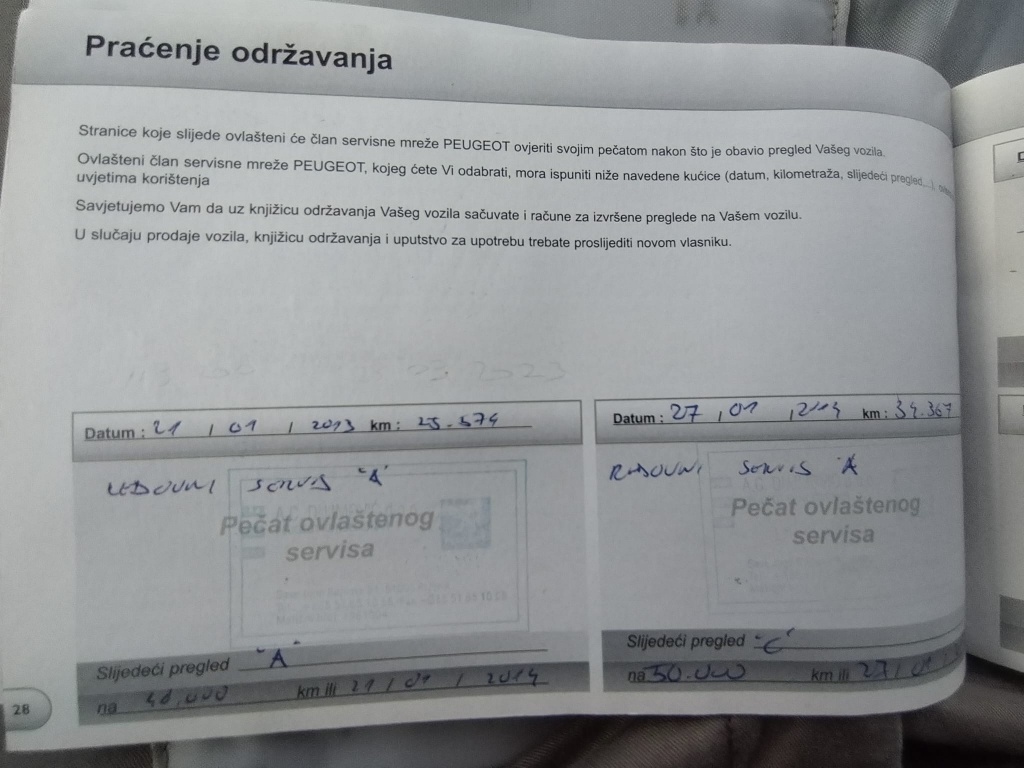 Praćenje održavanja
Stranice koje slijede ovlašteni će član servisne mreže PEUGEOT ovjeriti svojim pečatom nakon što je obavio pregled Vašeg vozila.
Ovlašteni član servisne mreže PEUGEOT, kojeg ćete Vi odabrati, mora ispuniti niže navedene kućice (datum, kilometraža, slijedeći pregled,...),
uvjetima korištenja
Savjetujemo Vam da uz knjižicu održavanja Vašeg vozila sačuvate i račune za izvršene preglede na Vašem vozilu.
U slučaju prodaje vozila, knjižicu održavanja i uputstvo za upotrebu trebate proslijediti novom vlasniku.
Datum : 21 / 01 / 2013 km : 25.574
REDOVNI SERVIS "A"
Pečat ovlaštenog
servisa
Slijedeći pregled "A"
na 40.000 km ili 21 / 01 / 2014
Datum : 27 / 01 / 2014 km : 34.367
REDOVNI SERVIS "A"
Pečat ovlaštenog
servisa
Slijedeći pregled "C"
na 50.000 km ili 27 / 01
28